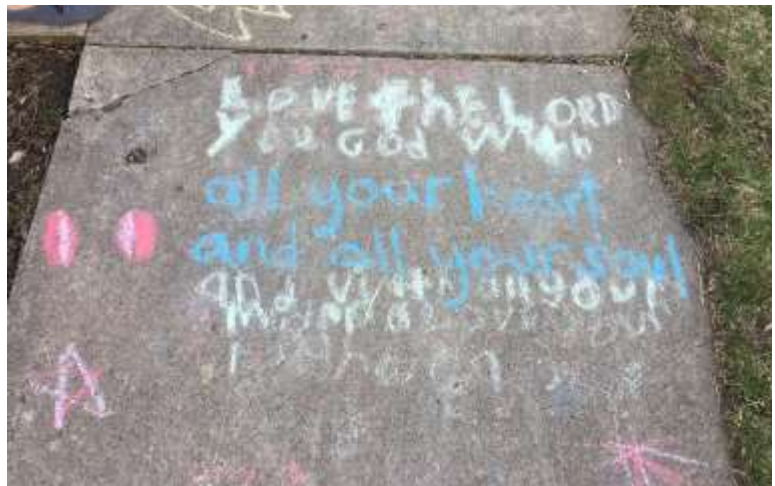 LOVE thE LORD
You God with
all your heart
and all your soul
and with all your
mind Love your